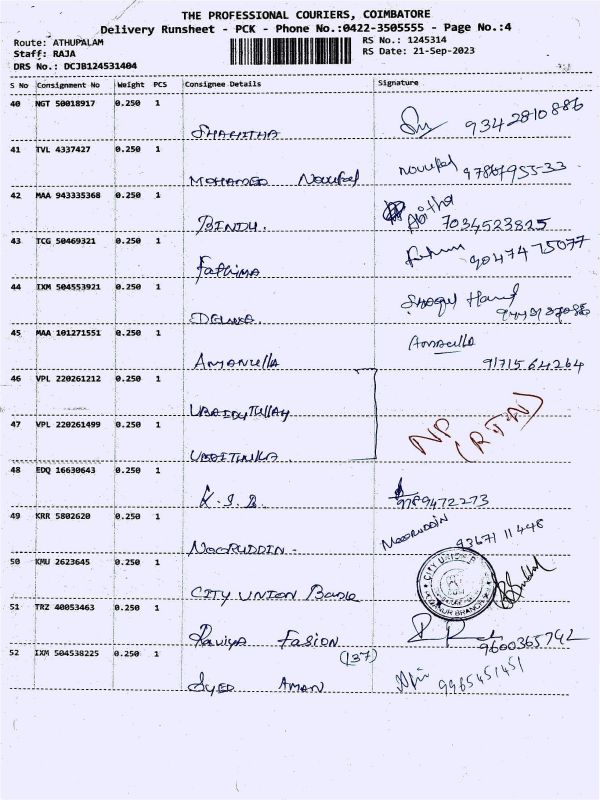 THE PROFESSIONAL COURIERS, COIMBATORE
Delivery Runsheet - PCK - Phone No.:0422-3505555 - Page No.:4
Route: ATHUPALAM
Staff: RAJA
DRS No.: DCJB124531404
RS No.: 1245314
RS Date: 21-Sep-2023
S No Consignment No Weight PCS Consignee Details Signature
40 NGT 50018917 0.250 1
9342810886
41 TVL 4337427 0.250 1
MOHAMED Noufel
42 MAA 943335368 0.250 1
BINDU. 7034523825
43 TCG 50469321 0.250 1
Fathima 9047475077
44 IXM 504553921 0.250 1
45 MAA 101271551 0.250 1
Amanulla
9171564264
46 VPL 220261212 0.250 1
47 VPL 220261499 0.250 1
NP
48 EDQ 16630643 0.250 1
9789472273
49 KRR 5802620 0.250 1
NOORUDDIN - Nooruddin 93671 11448
50 KMU 2623645 0.250 1
CITY UNION Bank
51 TRZ 40053463 0.250 1
Raviya FASION 9600365742
52 IXM 504538225 0.250 1
(137)
SYED AMAN 9965451451